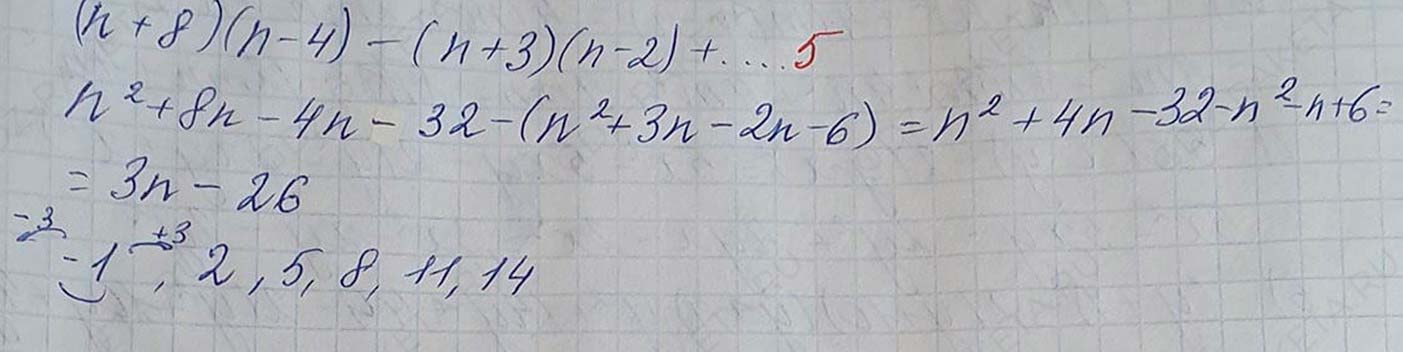 (n+8)(n-4) - (n+3)(n-2) + .... 5
n²+8n-4n-32-(n²+3n-2n-6) = n²+4n-32-n²-n+6=
= 3n-26
-3 +3
-1, 2, 5, 8, 11, 14